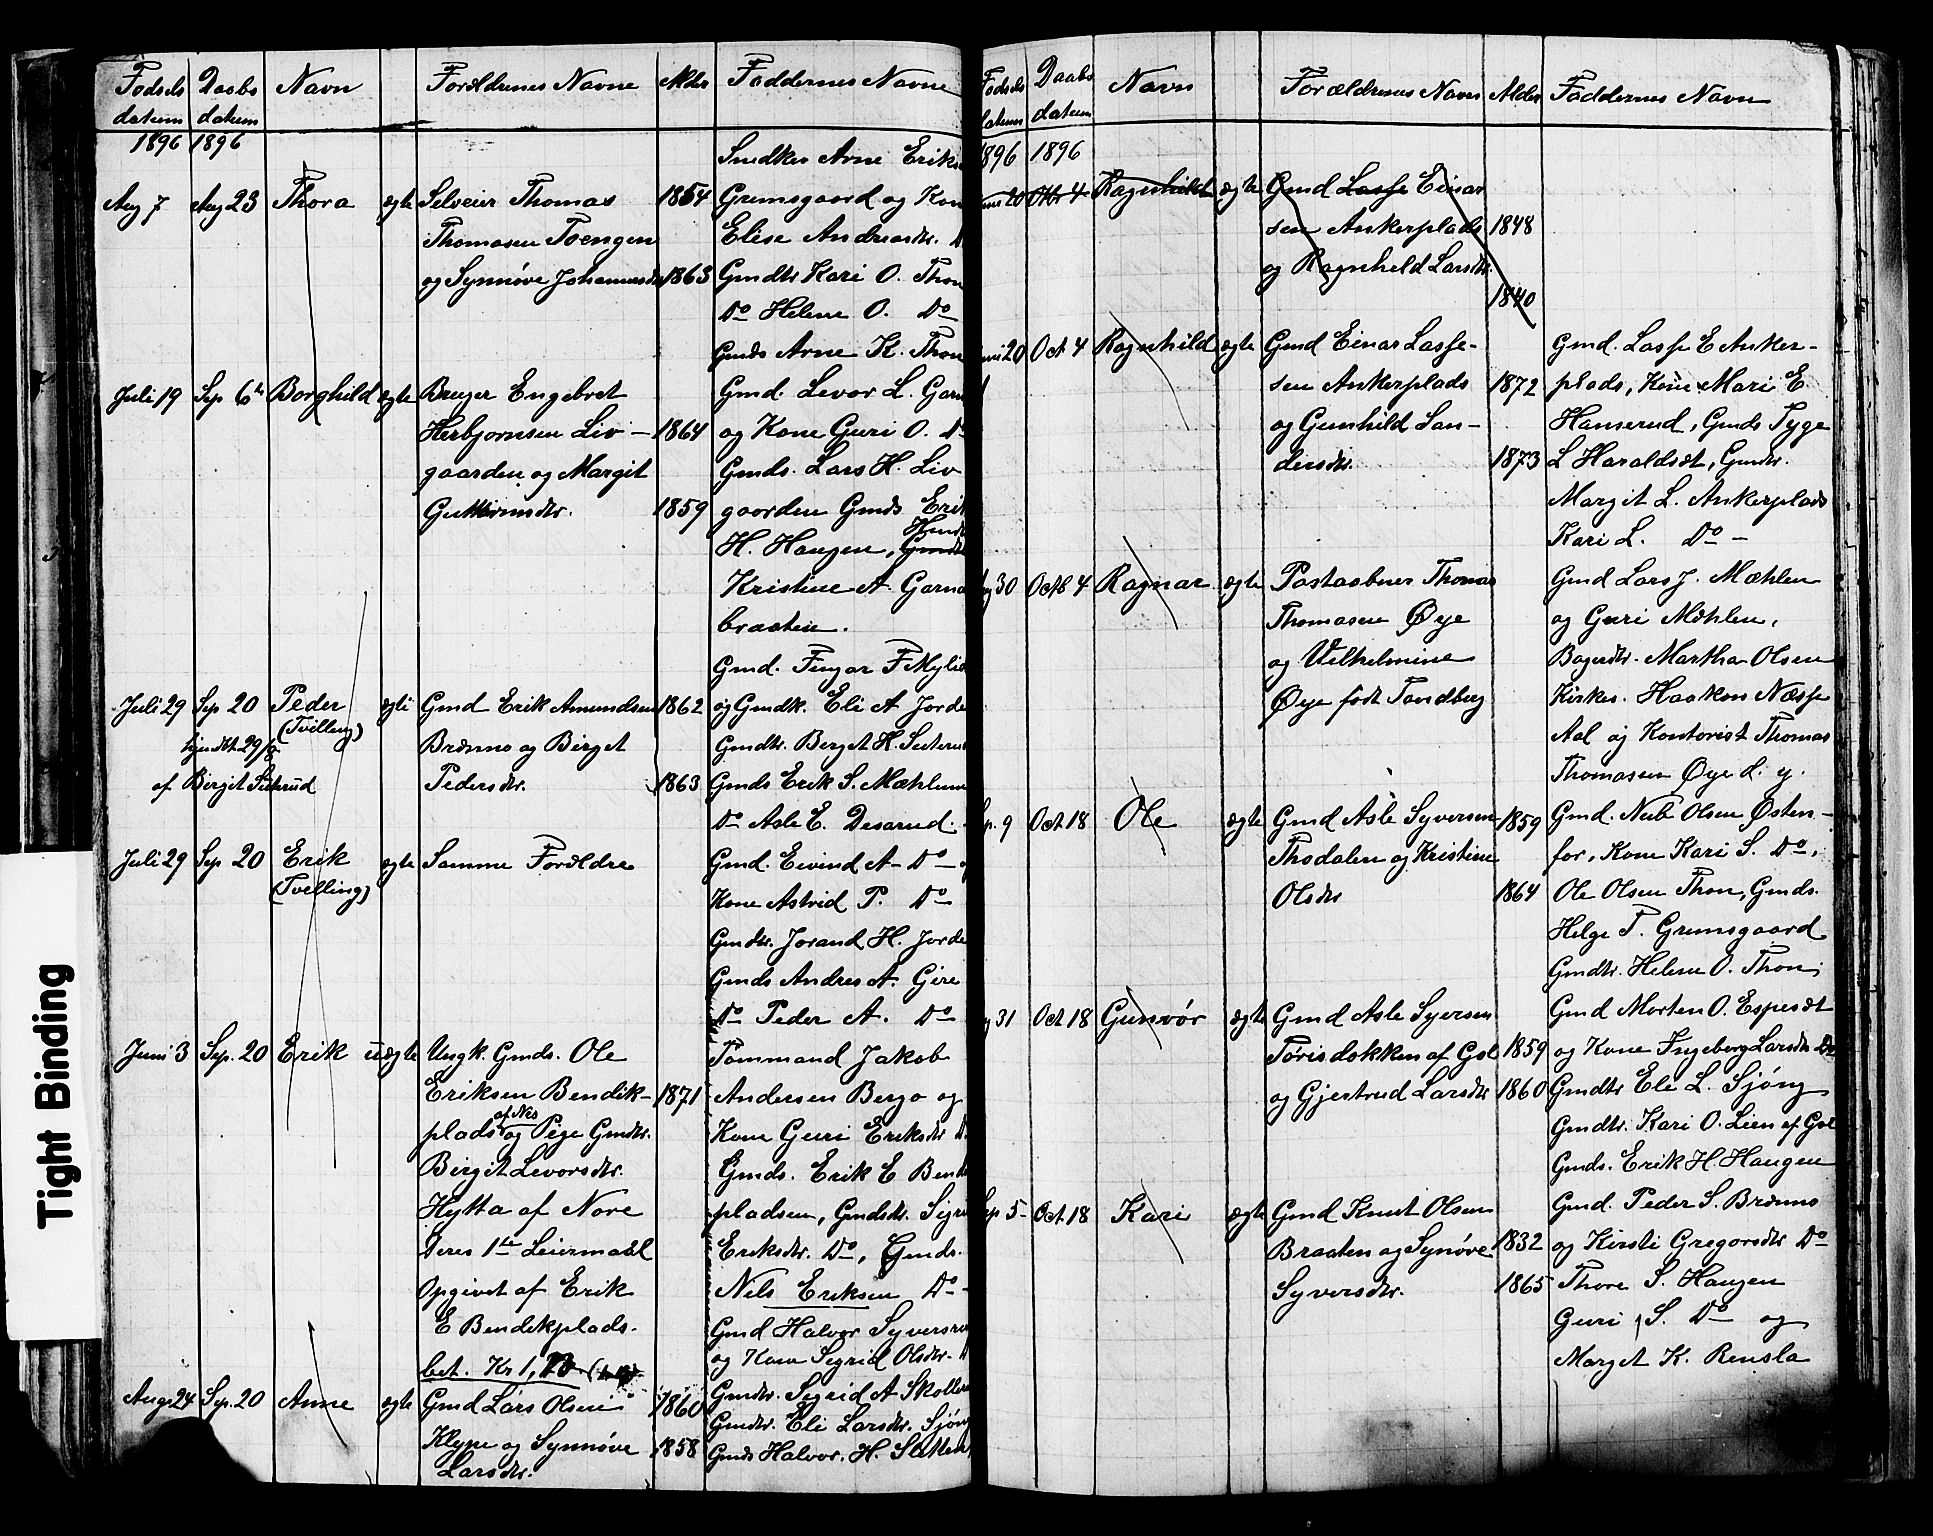 Fødsels Daabs Navn Forældrenes Navne Alder Faddernes Navne
datum datum
1896 1896
Snedker Arne Eriks
Aug 7 Aug 23 Thora ægte Selveier Thomas 1854 Gremsgaard og Kon
Thomasen Toengen Elise Andreasdtr. D
og Synnøve Johannesdtr 1863 Gmdtr Kari O. Thon
Do Helene O. Do
Gmds Arne K. Thon
Juli 19 Sep 6te Borghild ægte Bruger Engebret Gmd. Levor L. Garn
Herbjørnsen Liv- 1864 og Kone Guri O. Do
gaarden og Margit Gmds. Lars H. Liv
Guttormsdtr. 1859 gaarden Gmds Erik
H. Haugen, Gmdtr
Kristine A. Garna
braaten.
Gmd. Fingar F Mylie
Juli 29 Sep 20 Peder ægte Gmd Erik Amundsen 1862 og Gmdk. Eli A Jorde
(Tvilling)
hjemdbt 29/7 Brænno og Birget Gmdtr. Berget H. Seterud
af Birgit Seterud Pedersdtr. 1863 Gmds Erik S. Mæhlum
Do Asle E. Desarud.
Juli 29 Sep 20 Erik ægte Samme Forældre Gmd. Eivind A- Do
(Tvilling) Kone Astrid P. Do
Gmdtr. Jorand H. Jorde
Gmds Andres A. Gire
Do Peder A. Do
Juni 3 Sep. 20 Erik uægte Ungk. Gmds. Ole Tømmand Jakob
Eriksen Bendik- 1871 Andersen Bergo og
plads af Nes og Pige Gmdtr. Kone Guri Eriksdtr D
Birgit Levorsdtr. Gmds. Erik E Bendi
Hytta af Nore pladsen, Gmdsdtr. Sigri
Deres 1te Leiermaal Eriksdtr. Do, Gmds.
Opgivet af Erik Nils Eriksen Do-
E Bendikplads. Gmd Halvor Syversen
bet. Kr 1, og Kone Sigrid Olsdtr.
Aug 24 Sep. 20 Anne ægte Gmd Lars Olsen 1860 Gmdtr. Sigrid A Skollerud
Gmdtr. Eli Larsdtr. Sjøng
Klype og Synnøve 1858 Gmds Halvor. H. Sletten
Larsdtr.
Fødsels Daabs Navn Forældrenes Navn Alder Faddernes Navn
datum datum
1896 1896
Juni 20 Otbr 4 Ragnhild ægte Gmd Lasse Einar
sen Ankerplads 1848
og Ragnhild Larsdtr.
1840
Juni 20 Oct 4 Ragnhild ægte Gmd Einar Lasse- Gmd. Lasse E Anker-
sen Ankerplads 1872 plads, Kone Mari E
og Gunhild San- Hanserud, Gmds Tyge
dersdtr. 1873 L Haraldsæt, Gmdtr.
Margit L. Ankerplads
Kari L. Do -
Aug 30 Octb 4 Ragnar ægte Postaabner Thomas Gmd Lars J. Mæhlen
Thomasen Øye og Guri Mæhlen,
og Vilhelmine Bagerdtr. Martha Olsen
Øye født Tandberg Kirkes. Haakon Næsse
Aal og Kontorist Thomas
Thomasen Øye d. y.
Sep. 9 Oct 18 Ole ægte Gmd Asle Syversen 1859 Gmd. Nub Olsen Østen-
Thodalen og Kristine for, Kone Kari S. Do,
Olsdtr 1864 Ole Olsen Thon, Gmds.
Helge T. Gremsgaard
Gmdtr. Helene O. Thon;
Aug 31 Oct 18 Gunvør ægte Gmd Asle Syversen Gmd Morten O. Espesæt
Torisdokken af Gol 1859 og Kone Ingeborg Larsdtr Do
og Gjertrud Larsdtr 1860 Gmdtr Eli L. Sjøng
Gmdtr. Kari O. Lien af Gol
Gmds. Erik H. Haugen
Sep 5- Oct 18 Kari ægte Gmd Knut Olsen Gmd. Peder S. Brænno
Braaten og Synøve 1832 og Kirsti Gregorsdtr Do
Syversdtr. 1865 Thore S. Haugen
Guri S. Do og
Marget K. Rensla
Tight Binding